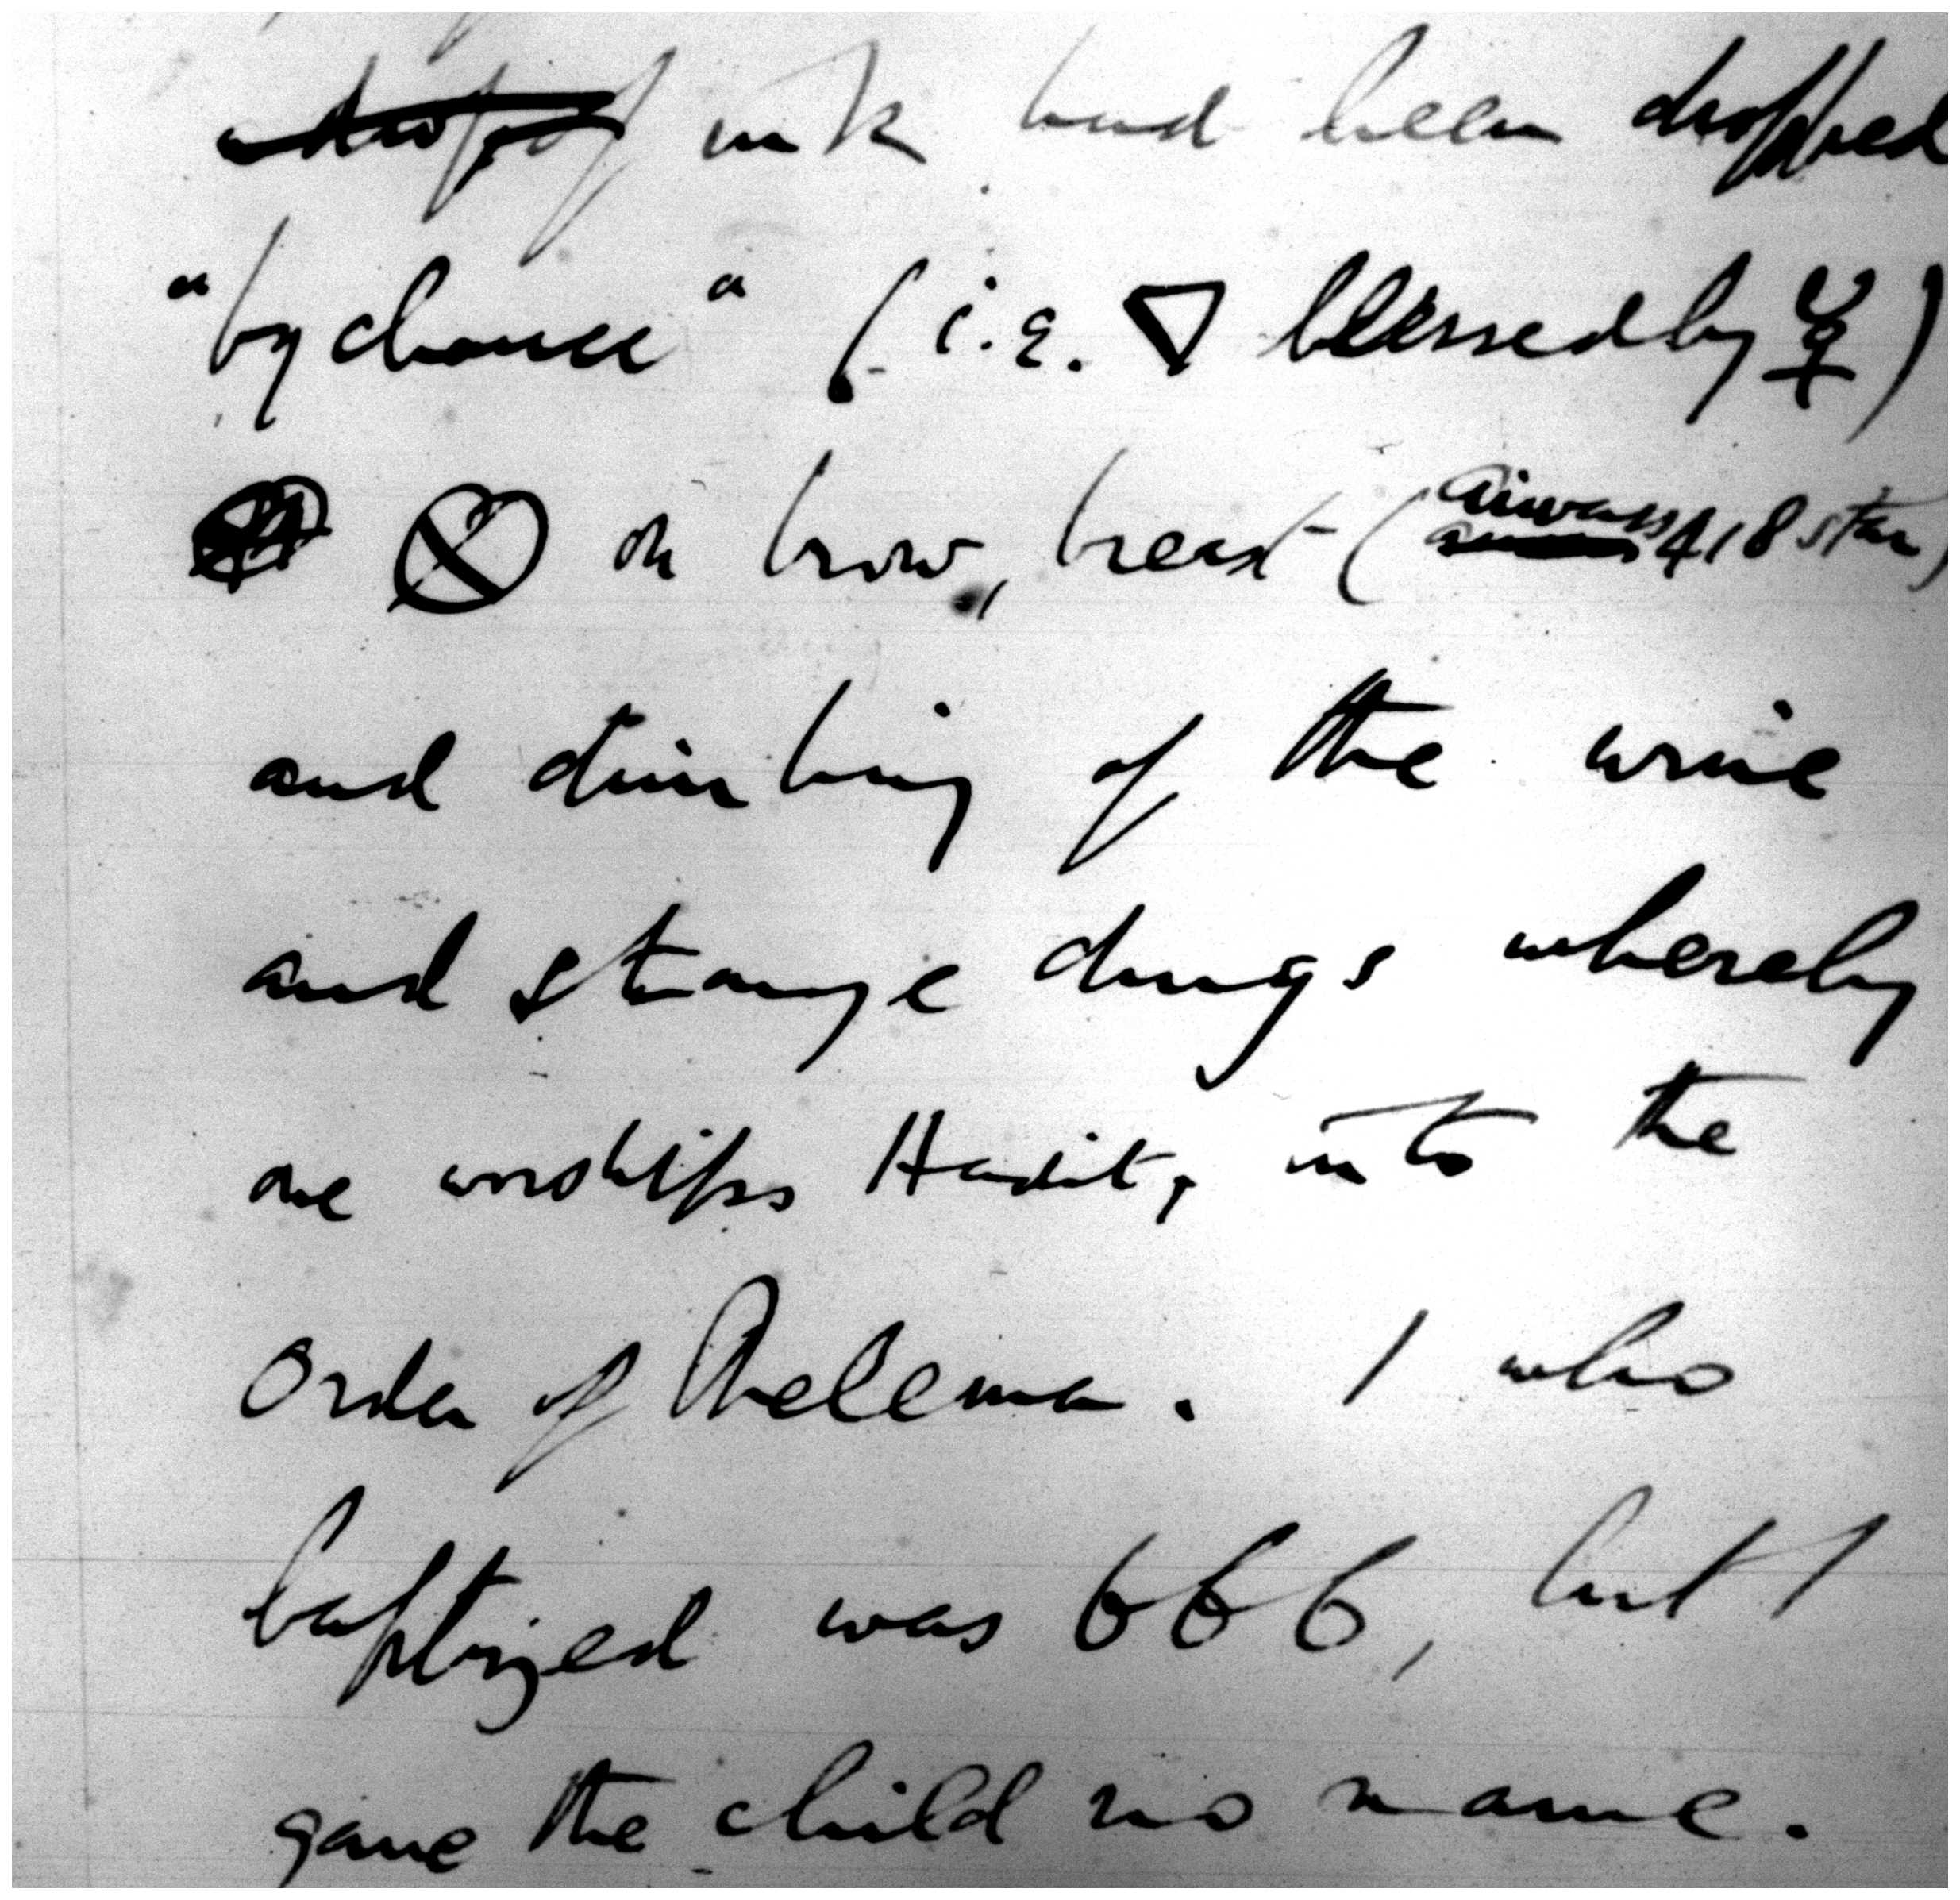 a drop of ink had been dropped
"by chance" (i.e. ▽ blessed by ☿)
⊗ on brow, breast (Aiwass 418 star)
and drinking of the wine
and strange drugs whereby
one worships Hadit, into the
Order of Thelema. I who
baptized was 666, but I
gave the child no name.